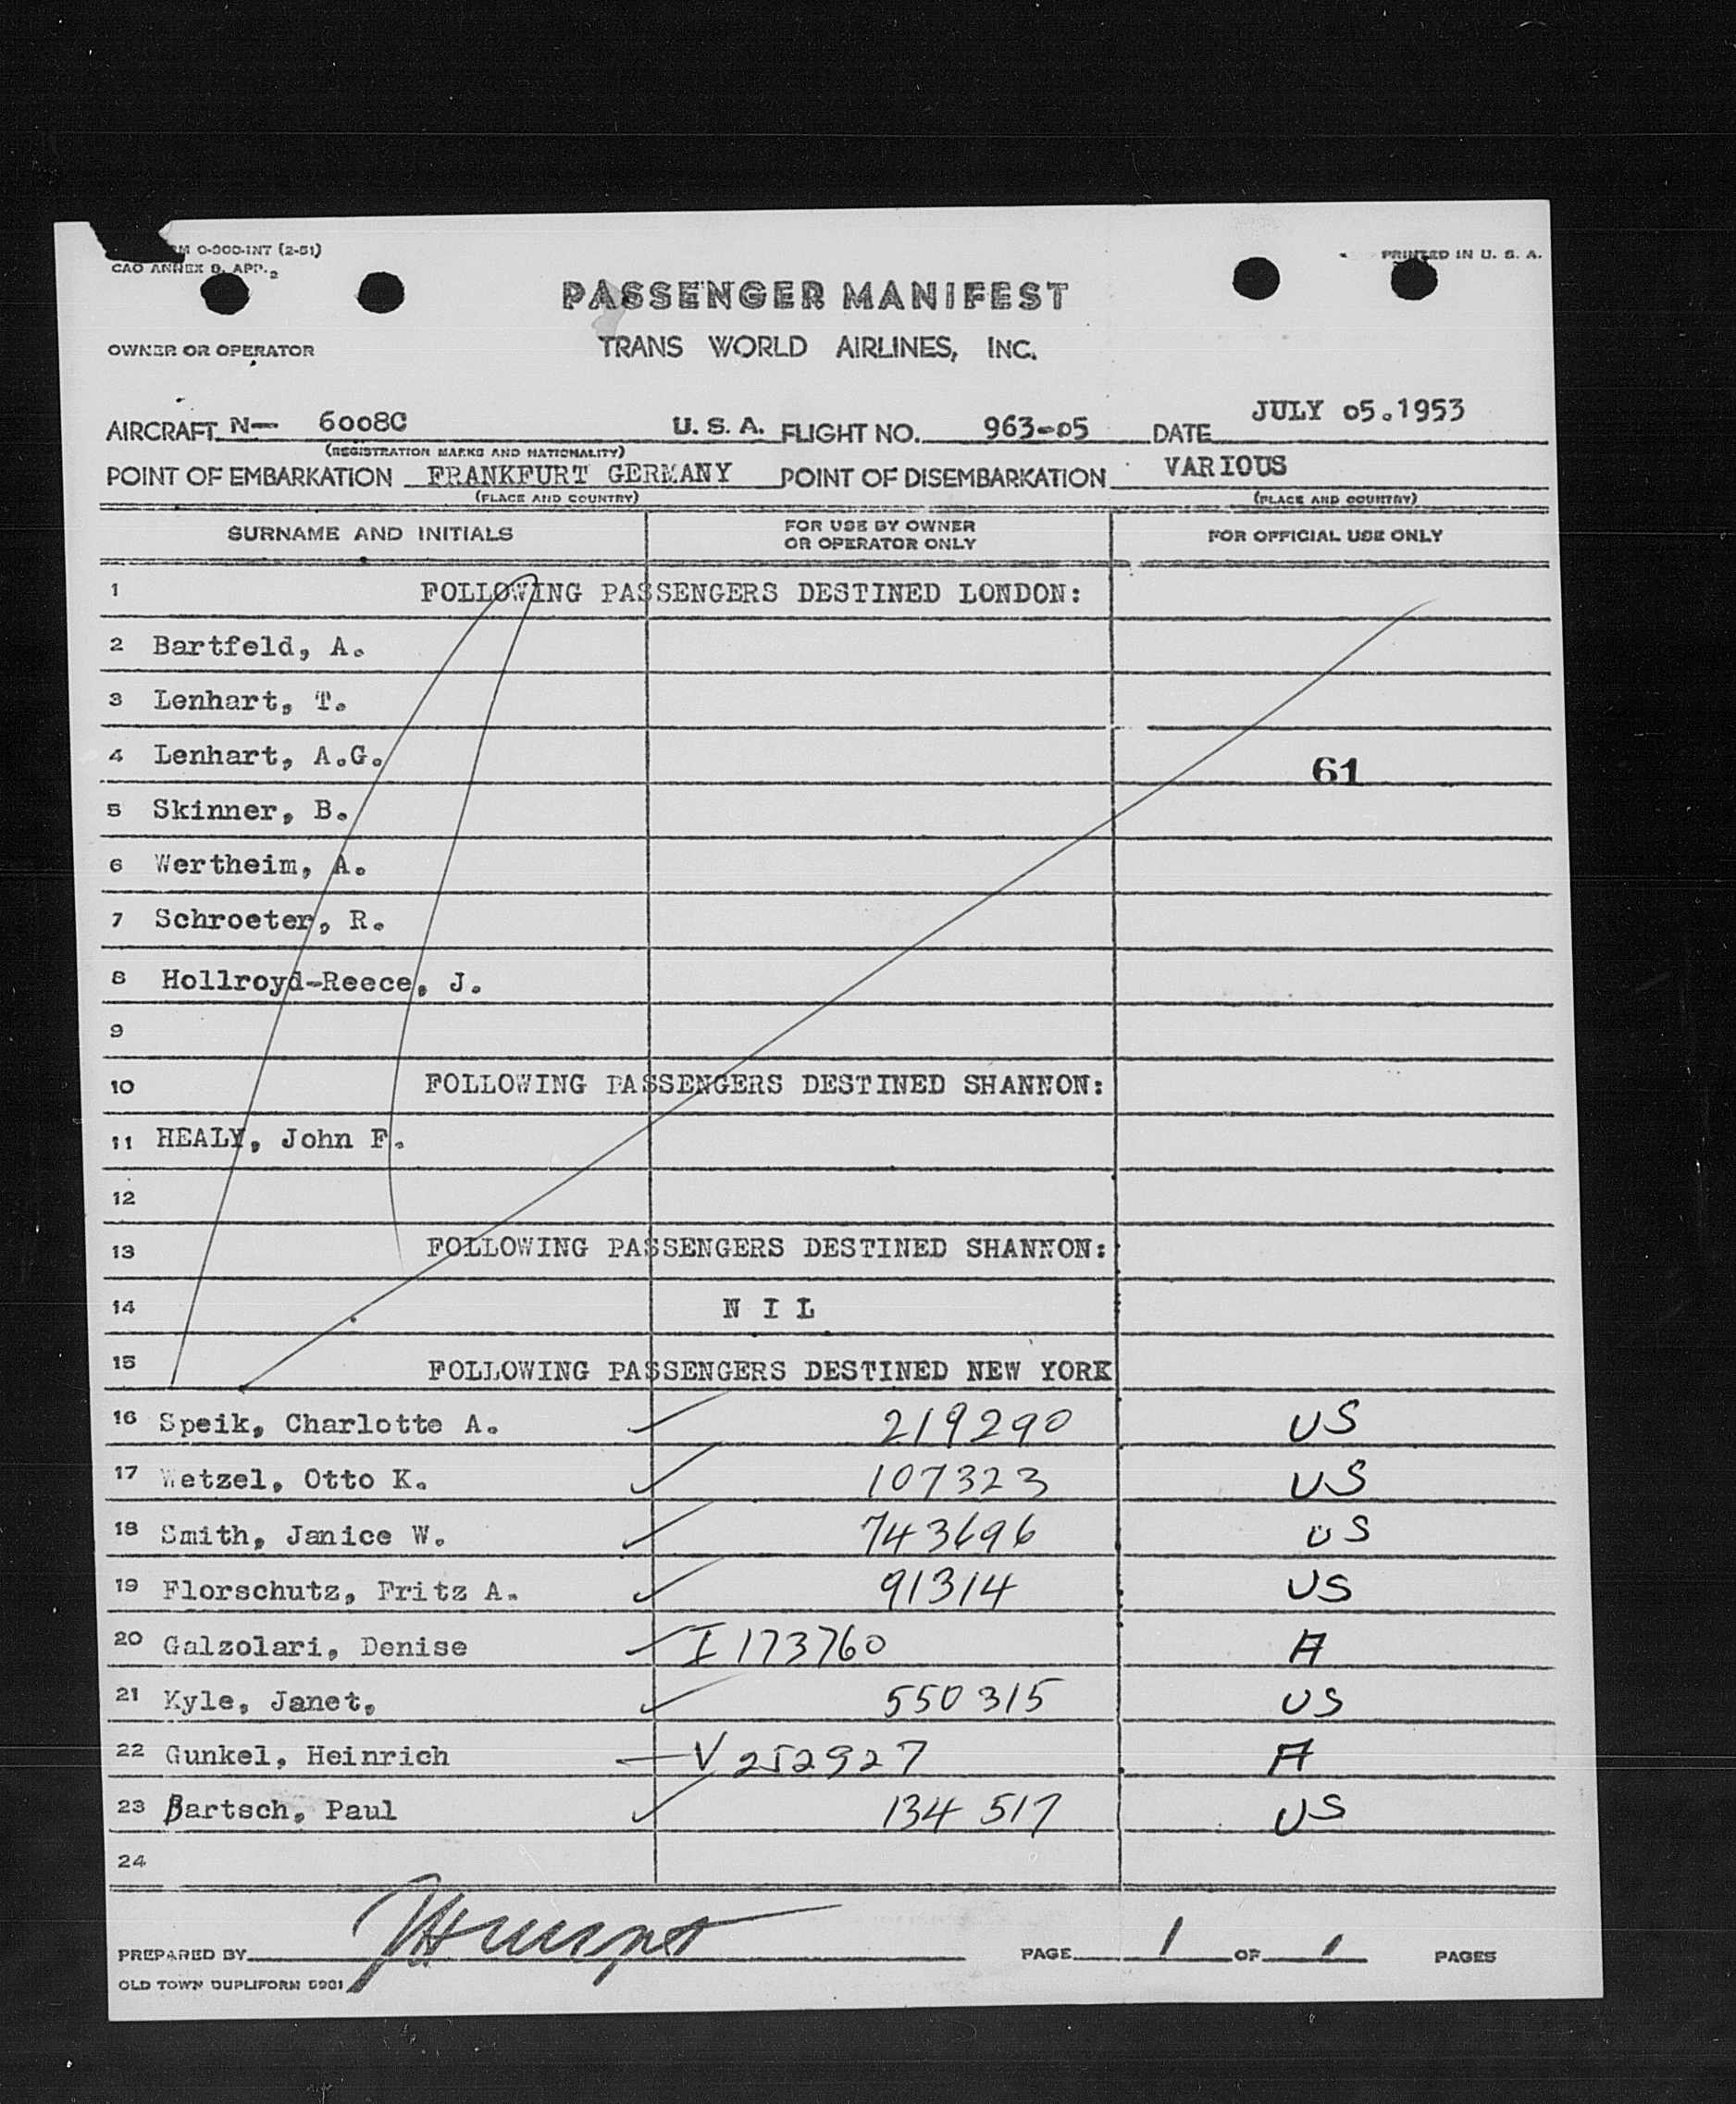 RM O-300-INT (2-51)
CAO ANNEX 9, APP. 2
PRINTED IN U. S. A.
PASSENGER MANIFEST
OWNER OR OPERATOR TRANS WORLD AIRLINES, INC.
AIRCRAFT N— 6008C U. S. A. FLIGHT NO. 963-05 DATE JULY 05.1953
(REGISTRATION MARKS AND NATIONALITY)
POINT OF EMBARKATION FRANKFURT GERMANY POINT OF DISEMBARKATION VARIOUS
(PLACE AND COUNTRY) (PLACE AND COUNTRY)
SURNAME AND INITIALS FOR USE BY OWNER OR OPERATOR ONLY FOR OFFICIAL USE ONLY
1 FOLLOWING PASSENGERS DESTINED LONDON:
2 Bartfeld, A.
3 Lenhart, T.
4 Lenhart, A.G. 61
5 Skinner, B.
6 Wertheim, A.
7 Schroeter, R.
8 Hollroyd-Reece, J.
9
10 FOLLOWING PASSENGERS DESTINED SHANNON:
11 HEALY, John F.
12
13 FOLLOWING PASSENGERS DESTINED SHANNON:
14 N I L
15 FOLLOWING PASSENGERS DESTINED NEW YORK
16 Speik, Charlotte A. 219290 US
17 Wetzel, Otto K. 107323 US
18 Smith, Janice W. 743696 US
19 Florschutz, Fritz A. 91314 US
20 Galzolari, Denise I 173760 A
21 Kyle, Janet, 550315 US
22 Gunkel, Heinrich V 252927 A
23 Bartsch, Paul 134 517 US
24
PREPARED BY PAGE 1 OF 1 PAGES
OLD TOWN DUPLIFORM 5901